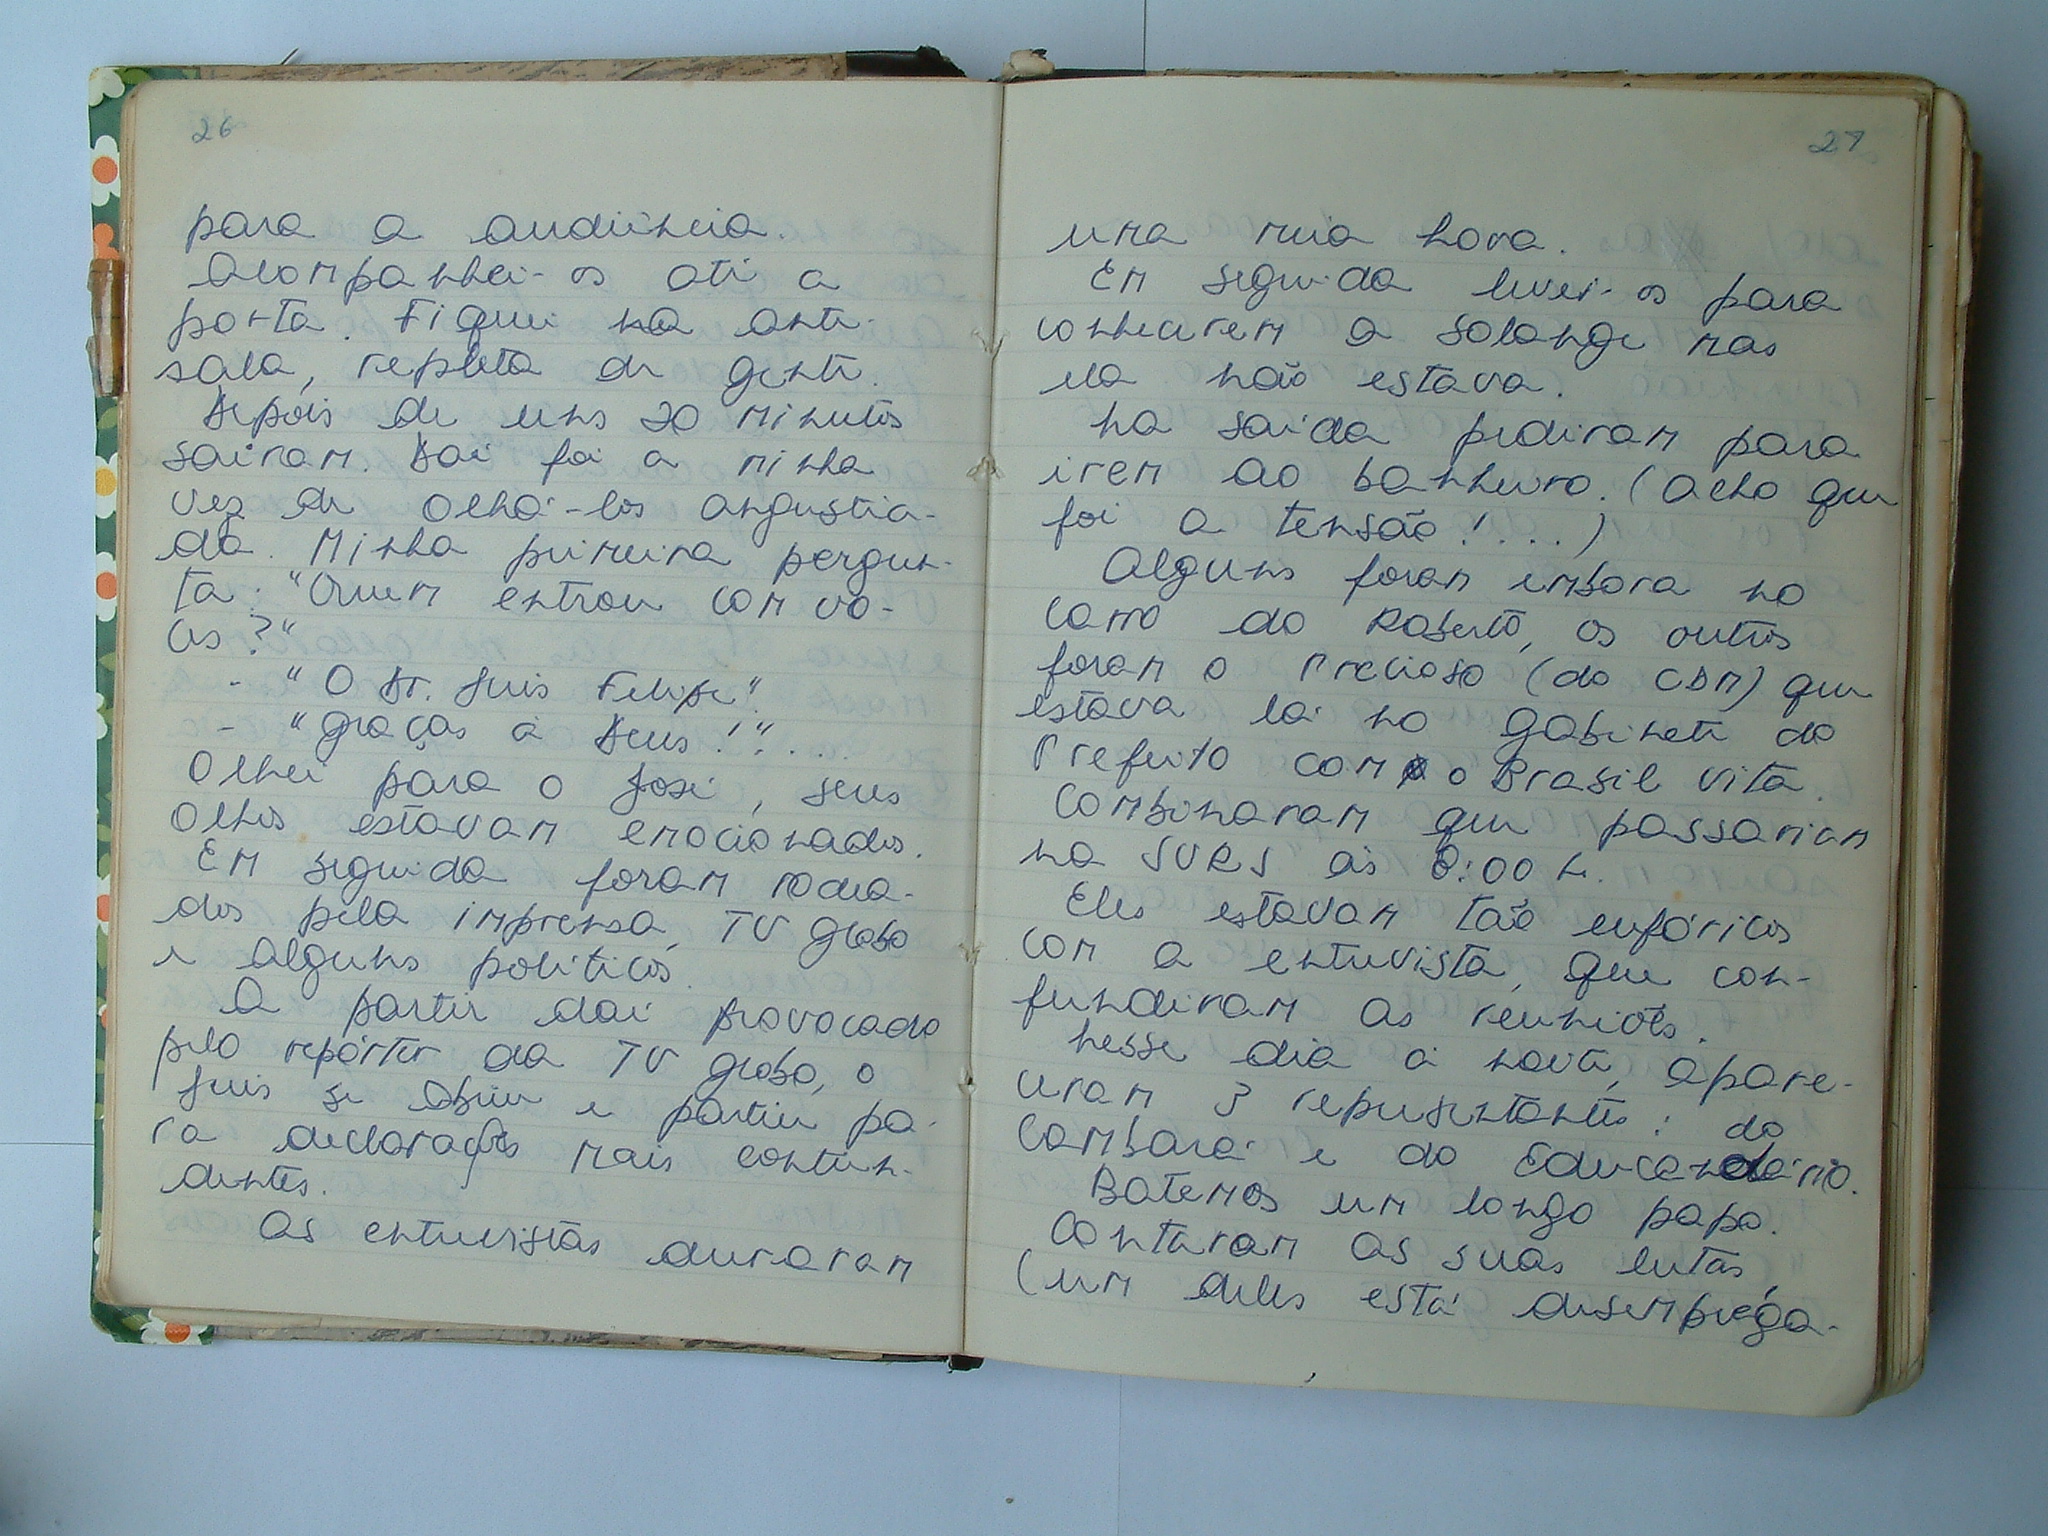 26
para a audiência.
Acompanhei-os até a
porta. Fiquei na ante-
sala, repleta de gente.
Depois de uns 20 minutos
sairam. Daí foi a minha
vez de olhá-los angustia-
da. Minha primeira pergun-
ta: "Quem entrou com vo-
cês?"
- "O Dr. Luis Felipe".
- "Graças a Deus!"...
Olhei para o José, seus
olhos estavam emocionados.
Em seguida foram rodea-
dos pela imprensa, TV Globo
e alguns politicos.
A partir daí provocado
pelo repórter da TV Globo, o
Luis se abriu e partiu pa-
ra declarações mais contun-
dentes.
As entrevistas duraram
27
uma meia hora.
Em seguida levei-os para
conhecerem a Solange mas
ela não estava.
Na saída pediram para
irem ao banheiro. (Acho que
foi a tensão!...)
Alguns foram embora no
carro do Roberto, os outros
foram o Precioso (do CDM) que
estava lá no gabinete do
Prefeito com o Brasil Vita.
Combinaram que passariam
na SURS às 8:00 h.
Eles estavam tão eufóricos
com a entrevista, que con-
fundiram as reuniões.
Nesse dia à noite, apare-
ceram 3 representantes: do
Cambará e do Educandário.
Batemos um longo papo.
Contaram as suas lutas,
(um deles está desemprega-